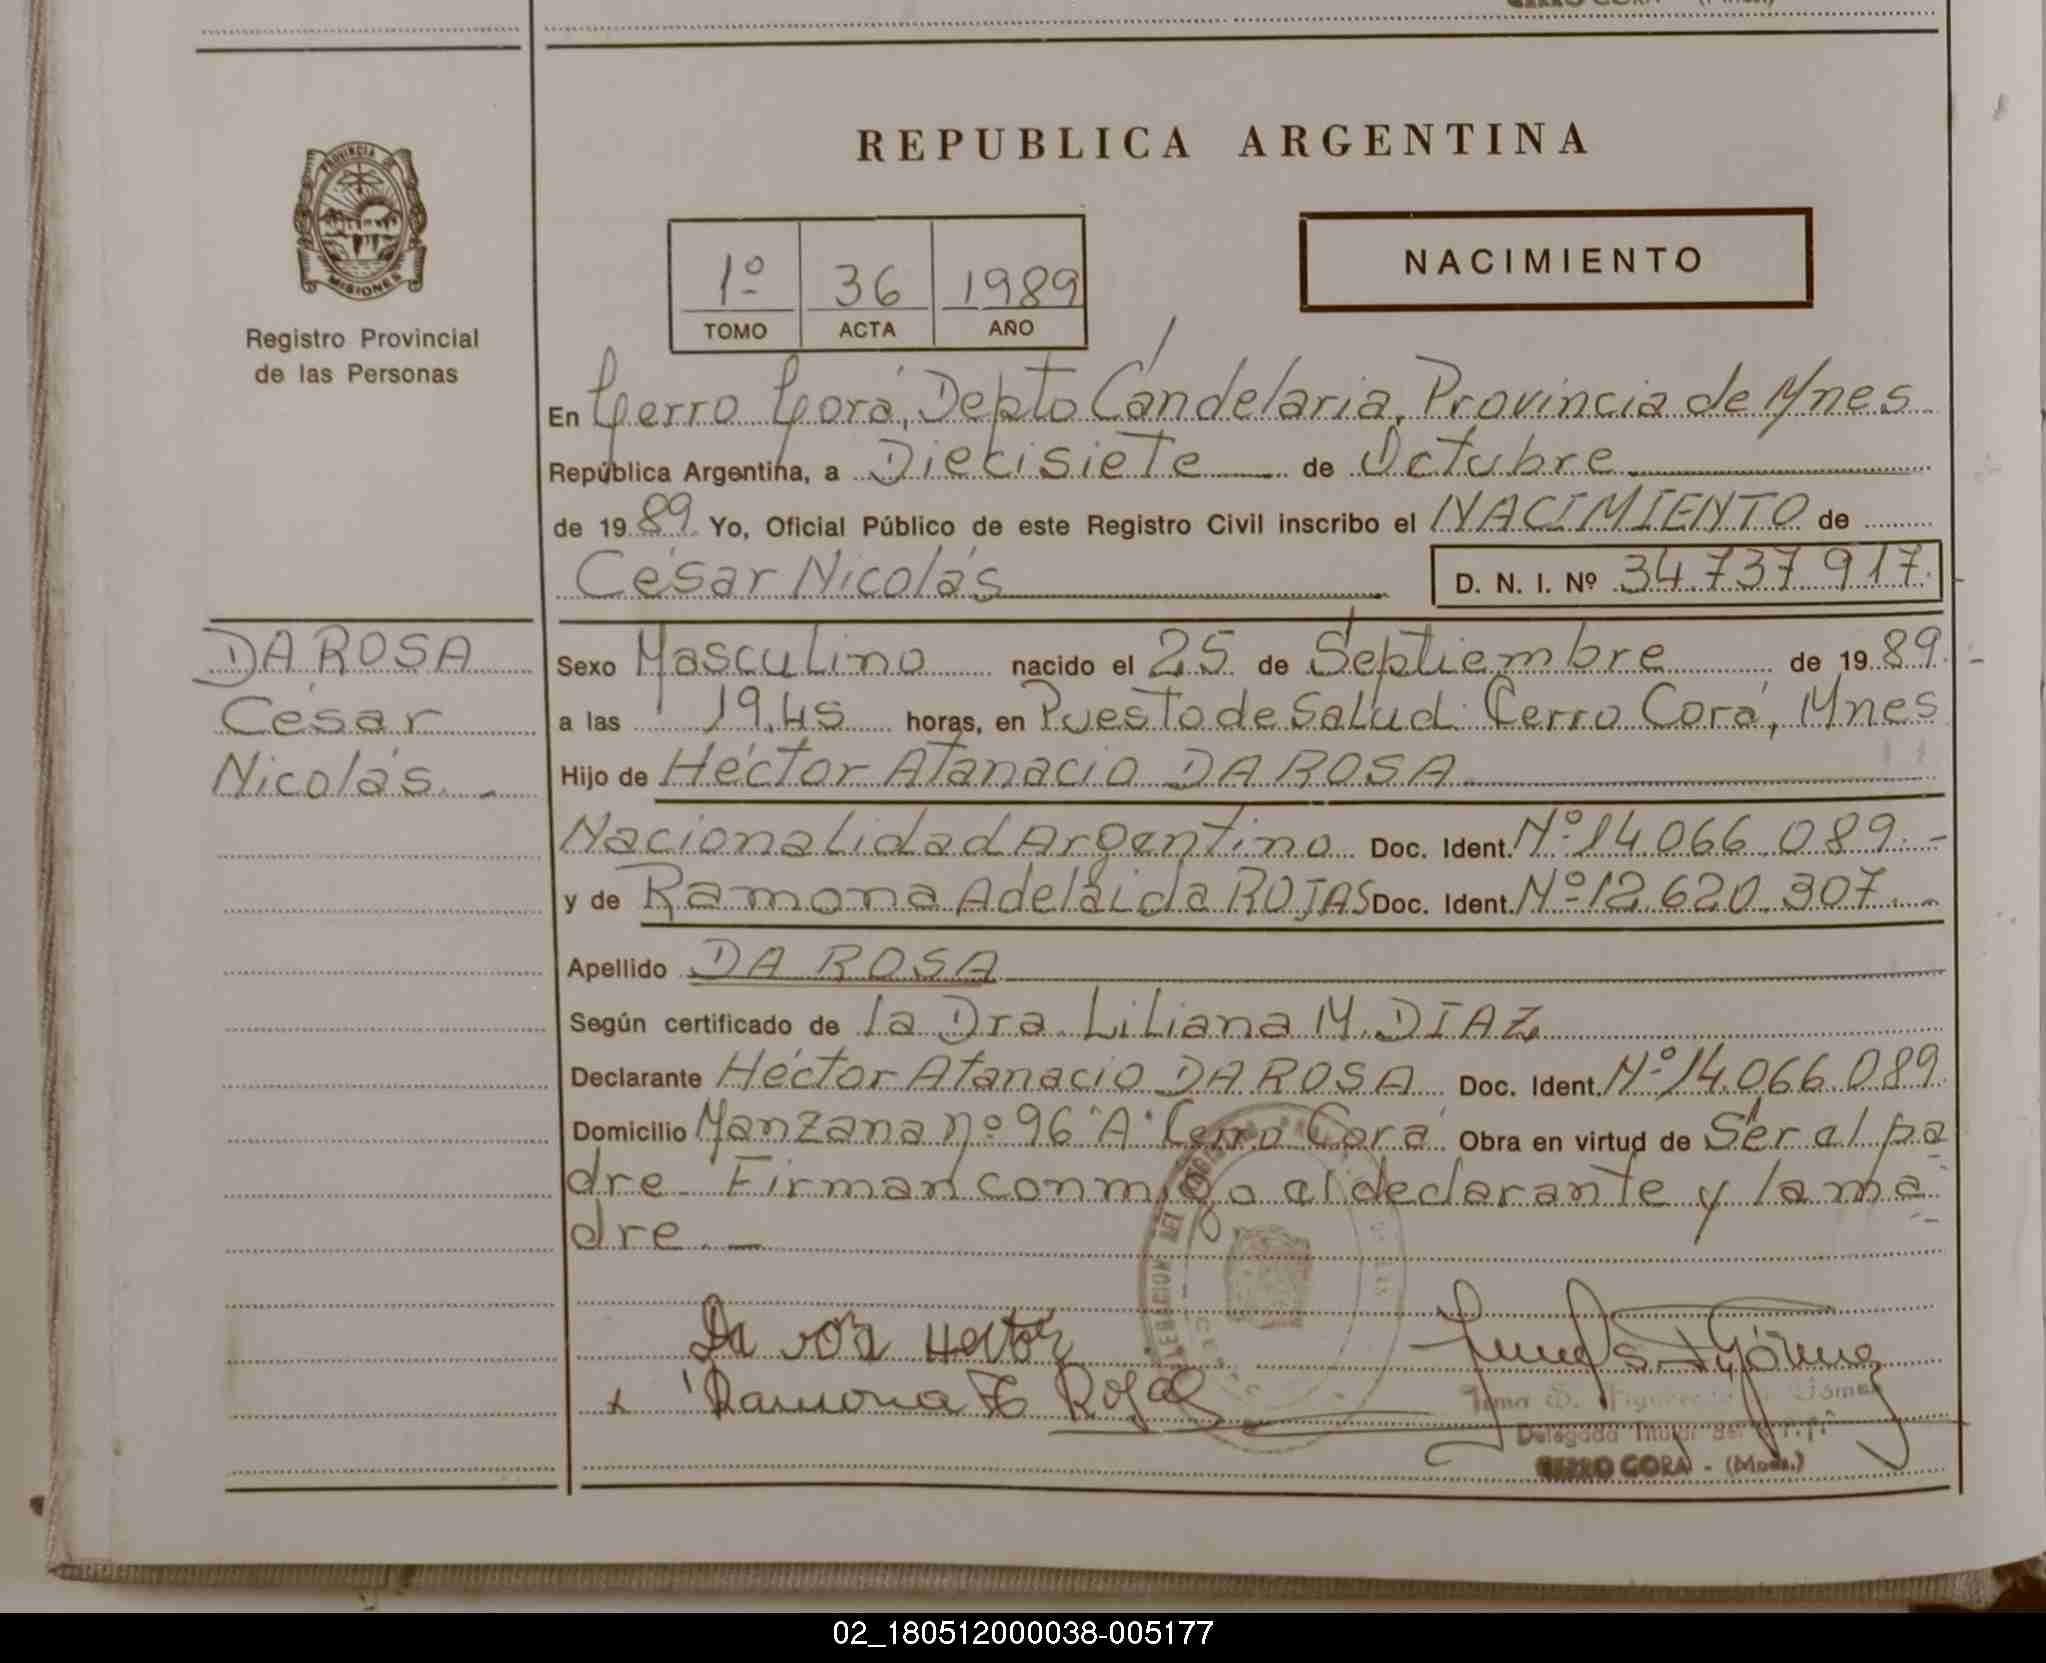 REPUBLICA ARGENTINA
PROVINCIA DE
MISIONES
Registro Provincial
de las Personas
1º 36 1989
TOMO ACTA AÑO
NACIMIENTO
En Cerro Corá, Depto Candelaria, Provincia de Mnes
República Argentina, a Diecisiete de Octubre
de 1989 Yo, Oficial Público de este Registro Civil inscribo el NACIMIENTO de
César Nicolás D. N. I. Nº 34.737.917.
DA ROSA
César
Nicolás. -
Sexo Masculino nacido el 25 de Septiembre de 1989.-
a las 19,45 horas, en Puesto de Salud Cerro Corá, Mnes
Hijo de Héctor Atanacio DA ROSA
Nacionalidad Argentino Doc. Ident. Nº 14.066.089.-
y de Ramona Adelaida ROJAS Doc. Ident. Nº 12.620.307.-
Apellido DA ROSA
Según certificado de la Dra Liliana M. DIAZ
Declarante Héctor Atanacio DA ROSA Doc. Ident. Nº 14.066.089.
Domicilio Manzana nº 96 "A" Cerro Corá Obra en virtud de Ser el pa
dre. Firman conmigo el declarante y la ma
dre. -
Da rosa Hector
x Ramona A Rojas
Delegada Titular del R.P.P.
CERRO CORA - (Mnes.)
02_180512000038-005177